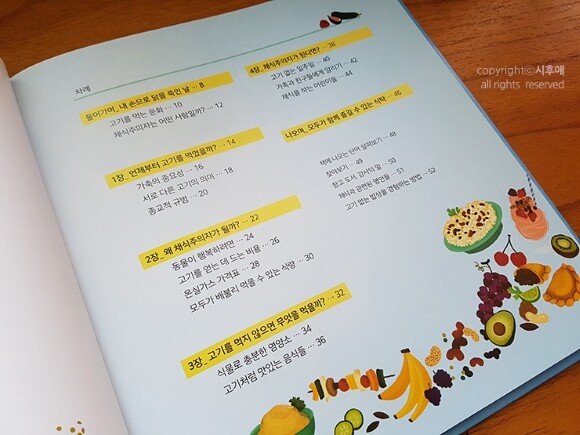 copyright©시후애
all rights reserved
차례
들어가며_ 내 손으로 닭을 죽인 날 ··· 8
고기를 먹는 문화 ··· 10
채식주의자는 어떤 사람일까? ··· 12
1장_ 언제부터 고기를 먹었을까? ··· 14
가축의 중요성 ··· 16
서로 다른 고기의 의미 ··· 18
종교적 규범 ··· 20
2장_ 왜 채식주의자가 될까? ··· 22
동물이 행복하려면 ··· 24
고기를 얻는 데 드는 비용 ··· 26
온실가스 가격표 ··· 28
모두가 배불리 먹을 수 있는 식량 ··· 30
3장_ 고기를 먹지 않으면 무엇을 먹을까? ··· 32
식물로 충분한 영양소 ··· 34
고기처럼 맛있는 음식들 ··· 36
4장_ 채식주의자가 된다면? ··· 38
고기 없는 일주일 ··· 40
가족과 친구들에게 알리기 ··· 42
채식을 하는 어린이들 ··· 44
나오며_ 모두가 함께 즐길 수 있는 식탁 ··· 46
책에 나오는 단어 살펴보기 ··· 48
찾아보기 ··· 49
참고 도서, 감사의 말 ··· 50
채식과 관련된 명언들 ··· 51
고기 없는 밥상을 경험하는 방법 ··· 52